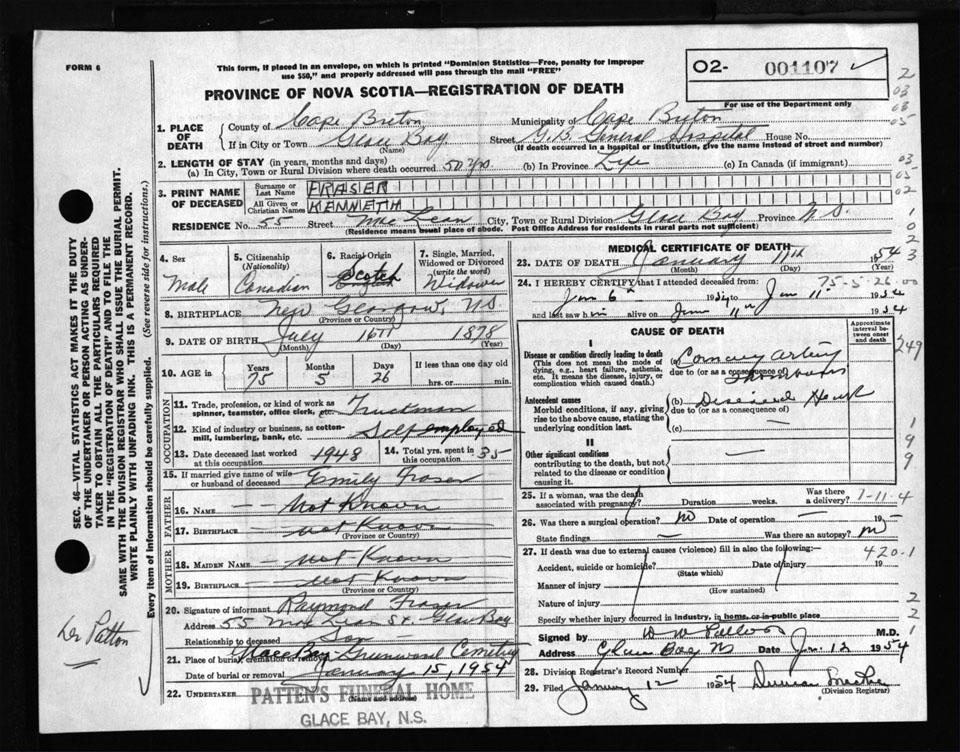 FORM 6
This form, if placed in an envelope, on which is printed "Dominion Statistics—Free, penalty for improper
use $50," and properly addressed will pass through the mail "FREE"
O2- 001107
For use of the Department only
PROVINCE OF NOVA SCOTIA—REGISTRATION OF DEATH
1. PLACE OF DEATH
County of Cape Breton Municipality of Cape Breton
If in City or Town Glace Bay. Street G.B. General Hospital House No.
(Name) (If death occurred in a hospital or institution, give the name instead of street and number)
2. LENGTH OF STAY (in years, months and days)
(a) In City, Town or Rural Division where death occurred 50 yrs. (b) In Province Life (c) In Canada (if immigrant)
3. PRINT NAME OF DECEASED
Surname or Last Name FRASER
All Given or Christian Names KENNETH
RESIDENCE No. 55 Street MacLean City, Town or Rural Division Glace Bay Province N.S.
(Residence means usual place of abode. Post Office Address for residents in rural parts not sufficient)
4. Sex
Male
5. Citizenship (Nationality)
Canadian
6. Racial Origin
Scotch
English
7. Single, Married, Widowed or Divorced (write the word)
Widower
8. BIRTHPLACE New Glasgow, N.S.
(Province or Country)
9. DATE OF BIRTH July 16TH 1878
(Month) (Day) (Year)
10. AGE in Years Months Days If less than one day old
75 5 26 hrs. or min.
OCCUPATION
11. Trade, profession, or kind of work as spinner, teamster, office clerk, etc. Truckman
12. Kind of industry or business, as cotton-mill, lumbering, bank, etc. Self employed
13. Date deceased last worked at this occupation 1948 14. Total yrs. spent in this occupation 35
15. If married give name of wife or husband of deceased Emily Fraser
FATHER
16. NAME — — Not Known
17. BIRTHPLACE — Not Known
(Province or Country)
MOTHER
18. MAIDEN NAME — Not Known
19. BIRTHPLACE — Not Known
(Province or Country)
20. Signature of informant Raymond Fraser
Address 55 MacLean St. Glace Bay
Relationship to deceased Son
21. Place of burial, cremation or removal Glace Bay Greenwood Cemetery
Date of burial or removal January 15, 1954
22. UNDERTAKER PATTEN'S FUNERAL HOME
(Name and address)
GLACE BAY, N.S.
MEDICAL CERTIFICATE OF DEATH
23. DATE OF DEATH January 11th 1954
(Month) (Day) (Year)
24. I HEREBY CERTIFY that I attended deceased from: 75-5-26-00
Jan 6th 1954 to Jan 11th 1954
and last saw him alive on Jan 11 1954
CAUSE OF DEATH
Approximate interval between onset and death
I
Disease or condition directly leading to death
(This does not mean the mode of dying, e.g., heart failure, asthenia, etc. It means the disease, injury, or complication which caused death.)
(a) Coronary artery
due to (or as a consequence of)
Thrombosis
Antecedent causes
Morbid conditions, if any, giving rise to the above cause, stating the underlying condition last.
(b) Diseased Heart
due to (or as a consequence of)
(c) —
II
Other significant conditions
contributing to the death, but not related to the disease or condition causing it.
25. If a woman, was the death associated with pregnancy? Duration weeks. Was there a delivery? 7-11-4
26. Was there a surgical operation? no Date of operation — 195
State findings — Was there an autopsy? no
27. If death was due to external causes (violence) fill in also the following:— 420-1
Accident, suicide or homicide? Date of injury 19
(State which)
Manner of injury
(How sustained)
Nature of injury
Specify whether injury occurred in industry, in home, or in public place
Signed by M.D.
Address Glace Bay NS Date Jan. 12 1954
28. Division Registrar's Record Number
29. Filed January 12 1954 Duncan
(Division Registrar)
SEC. 46—VITAL STATISTICS ACT MAKES IT THE DUTY
OF THE UNDERTAKER OR PERSON ACTING AS UNDER-
TAKER TO OBTAIN ALL THE PARTICULARS REQUIRED
IN THE "REGISTRATION OF DEATH" AND TO FILE THE
SAME WITH THE DIVISION REGISTRAR WHO SHALL ISSUE THE BURIAL PERMIT.
WRITE PLAINLY WITH UNFADING INK. THIS IS A PERMANENT RECORD.
Every item of information should be carefully supplied. (See reverse side for instructions.)
Dr Patton
2
03
03
05
03
05
02
1
0
2
3
249
1
9
9
2
2
1